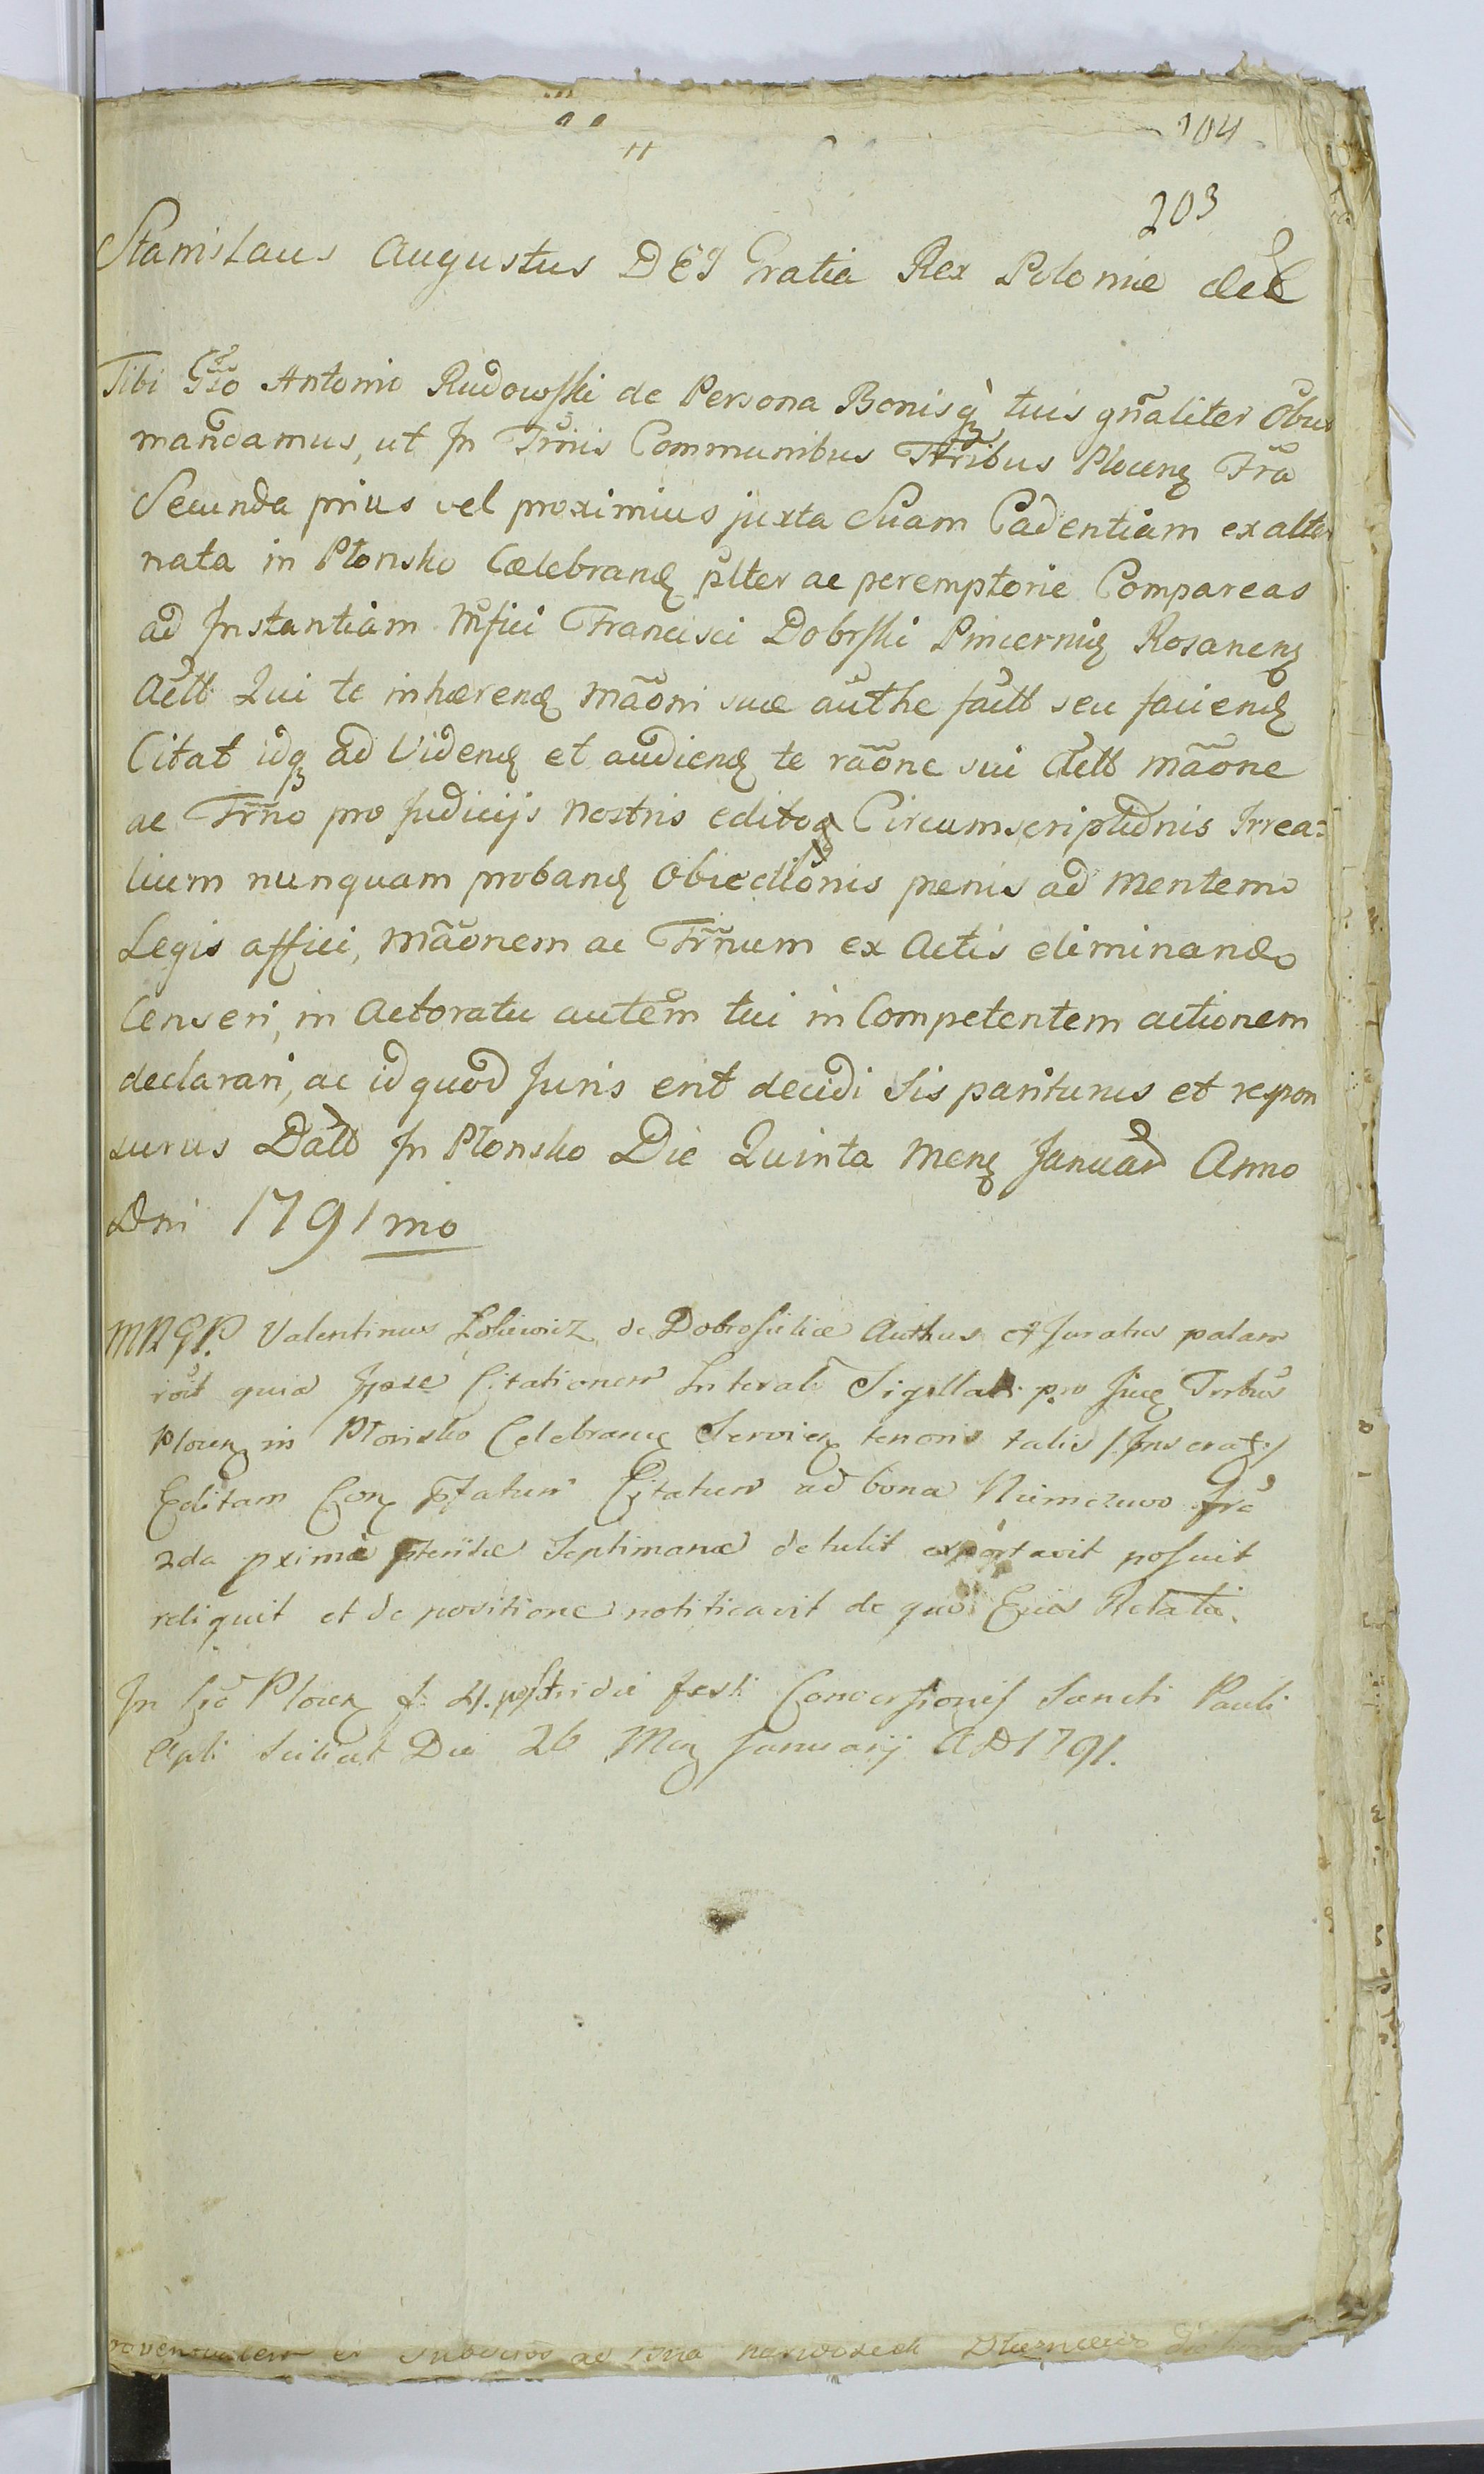 104
203
Stanislaus Augustus DEI Gratia Rex Poloniæ
Tibi Gso Antonio Rudowski de Persona Bonisq tuis gnaliter Obus
mandamus, ut In Trnis Communibus Trribus Plocen Fra
Secunda prius vel proximius juxta Suam Cadentiam ex alter
nata in Płonsko Cælebrand plter ac peremptorie Compareas
ad Instantiam Mfici Francisci Dobrski Pincernię Rosanen
Actt Qui te inhærend mãoni suæ authe factt seu faciend
Citat idq ad Videnđ et audiend te rãone sui Actt mãone
ac Trno pro Judicijs Nostris edito Circumscriptionis Irrea=
lium nunquam proband Obiectionis penis ad mentem
Legis affici, mãonem ac Trnum ex Actis eliminando
Censeri, in Actoratu autem tui in Competentem actionem
declarari, ac id quod Juris erit decidi Sis pariturus et respon
surus Datt In Płonsko Die Quinta Men Januar Anno
Dni 1791mo
MRGP. Valentinus de Authus et Juratus palam
quia Ipse Citationem Literalẽ Sigillat. pro
Plocen in Płonsko Celebrand Servien tenoris talis
Editam Con Citatum ad bona Fra
2da pxime pteritæ Septimanæ detulit exportavit posuit
reliquit et de positione notificavit de quo Eius Relatio.
In Plocen f. 4. postridie festi Conversionis Sancti Pauli
Apli scilicet Die 26 Men Januarij AD 1791.